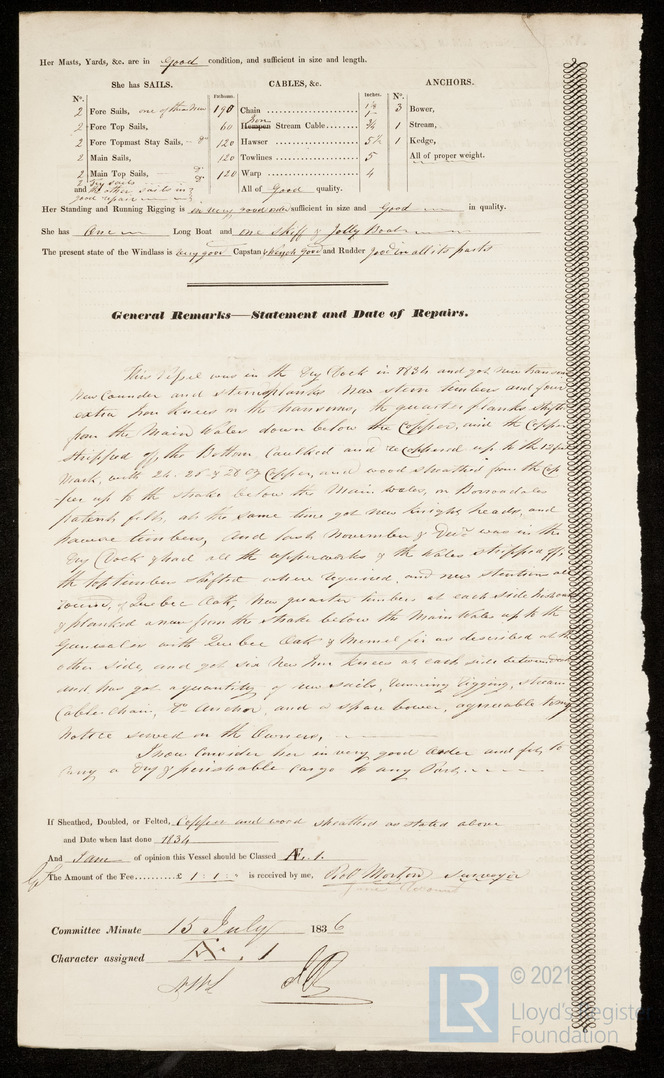 Her Masts, Yards, &c. are in Good condition, and sufficient in size and length.
She has SAILS. CABLES, &c. ANCHORS.
No. Fathoms. Inches. No.
2 Fore Sails, one of them New 190 Chain 3 Bower,
2 Fore Top Sails, 60 Hempen Iron Stream Cable 3/4 1 Stream,
2 Fore Topmast Stay Sails, - do 120 Hawser 5 1/2 1 Kedge,
2 Main Sails, 120 Towlines 5 All of proper weight.
2 Main Top Sails, - do 120 Warp 4
2 Try sails do
and the other sails in All of Good quality.
good repair
Her Standing and Running Rigging is in very good order sufficient in size and Good in quality.
She has One Long Boat and one Skiff & Jolly Boat
The present state of the Windlass is very good Capstan & Winch Good and Rudder good in all its parts
General Remarks—Statement and Date of Repairs.
This Vessel was in the Dry Dock in 1834 and got new transom
New Counder and planks New stern timbers and four
extra Iron Knees in the transoms, the quarter planks shifted
from the Main Wales down below the Copper, and the Copper
stripped off, the Bottom Caulked and recoppered up to the 12 feet
Mark, with 24. 26 & 28 oz Copper, and wood sheathed from the Cop
per up to the strake below the Main Wales, on Borrodales
patent felt, at the same time got new Knight heads, and
hawse timbers, And last November & Decr was in the
Dry Dock & had all the upperworks & the Wales stripped off,
the toptimber shifted where required, and new stantions all
round, of Quebec Oak, New quarter timbers at each side
& planked anew from the strake below the Main Wales up to the
with Quebec Oak & Memel fir as described at the
other side, and got six New Iron Knees at each side between
and has got a quantity of new sails, running rigging, stream
Cable Chain, Do Anchor, and a spare bower, agreeable to my
Notice served on the Owners,
I now Consider her in very good order and fit, to
carry a Dry & perishable Cargo to any Port.
If Sheathed, Doubled, or Felted, Copper and wood sheathed as stated above
and Date when last done 1834
And I am of opinion this Vessel should be Classed Æ. 1.
The Amount of the Fee £ 1 : 1 : - is received by me, Robt Morton Surveyor
Committee Minute 15 July 1836
Character assigned Æ. 1
© 2021
LR
Lloyd's Register
Foundation